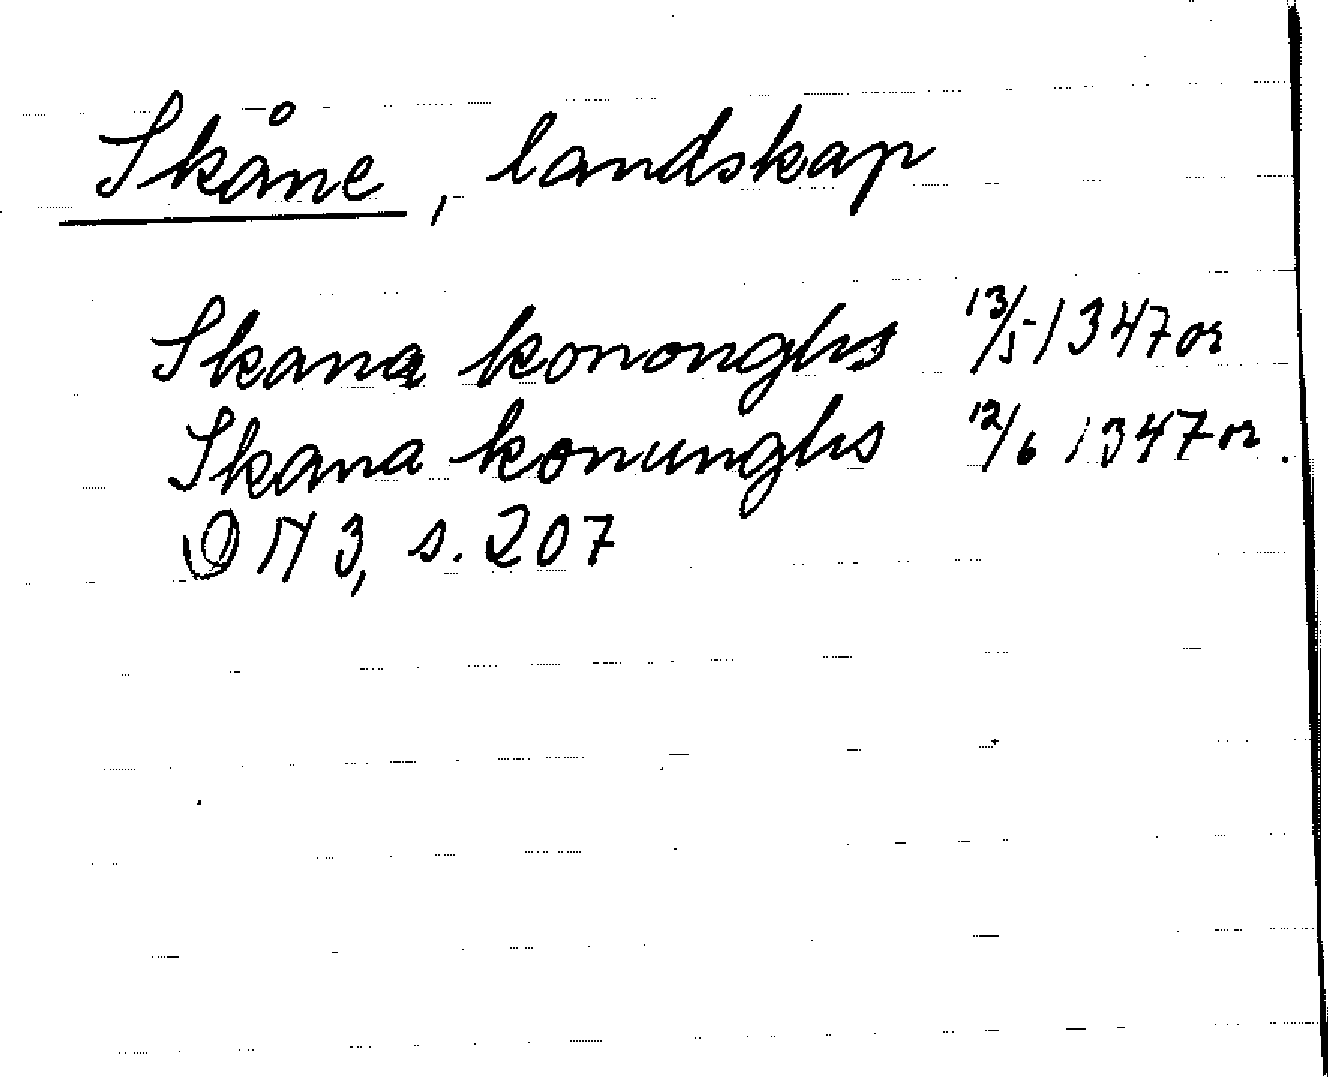 Skåne, landskap
Skana kononghs 13/5 1347 or
Skana konunghs 12/6 1347 or.
DN 3, s. 207